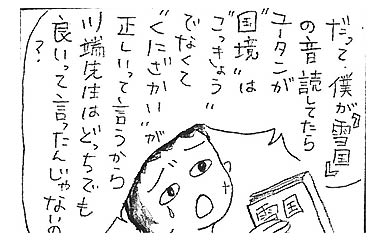 だって、僕が『雪国』
の音読してたら
ユータンが
“国境”は
“こっきょう”
でなくて
“くにざかい”が
正しいって言うから
川端先生はどっちでも
良いって言ったんじゃないの
?
雪国